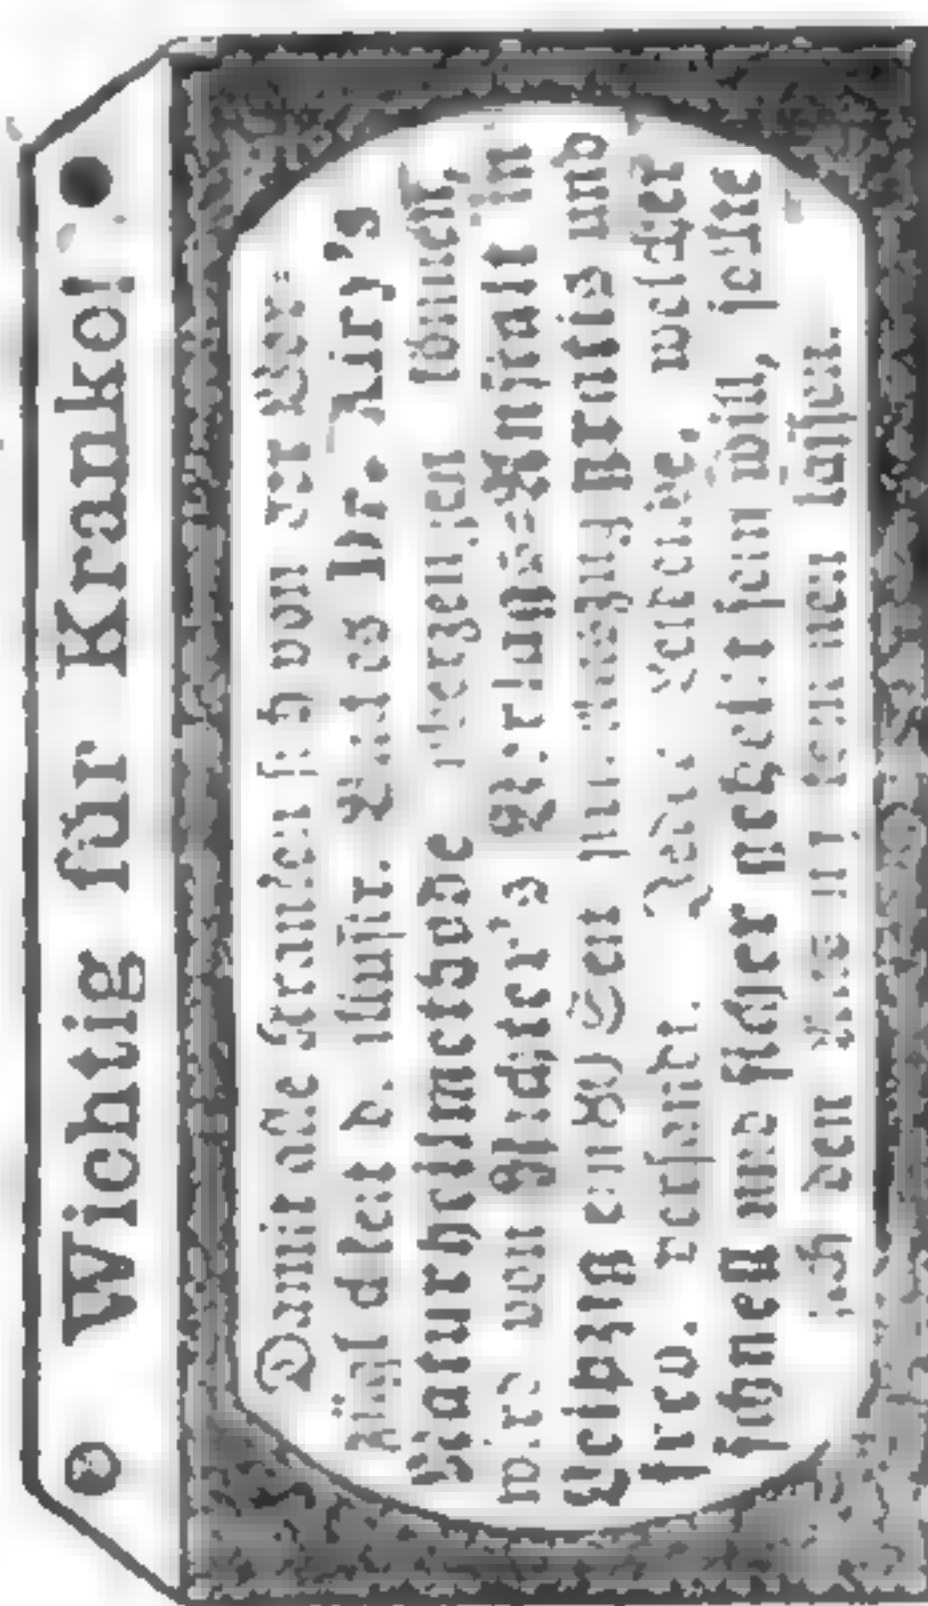 Wichtig für Kranke!
Damit alle Kranken sich von der Vor-
züglichkeit d. illustr. Buches Dr. Airy's
Naturheilmethode überzeugen können,
wird von Richter's Verlags-Anstalt in
Leipzig ein 80 Seit. Auszug gratis und
frco. versandt. Jeder Leidende, welcher
schnell und sicher geheilt sein will, sollte
sich den Auszug kommen lassen.